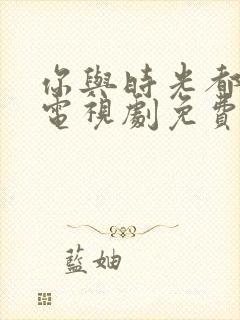 你與時光都
電視劇免費
藍妯